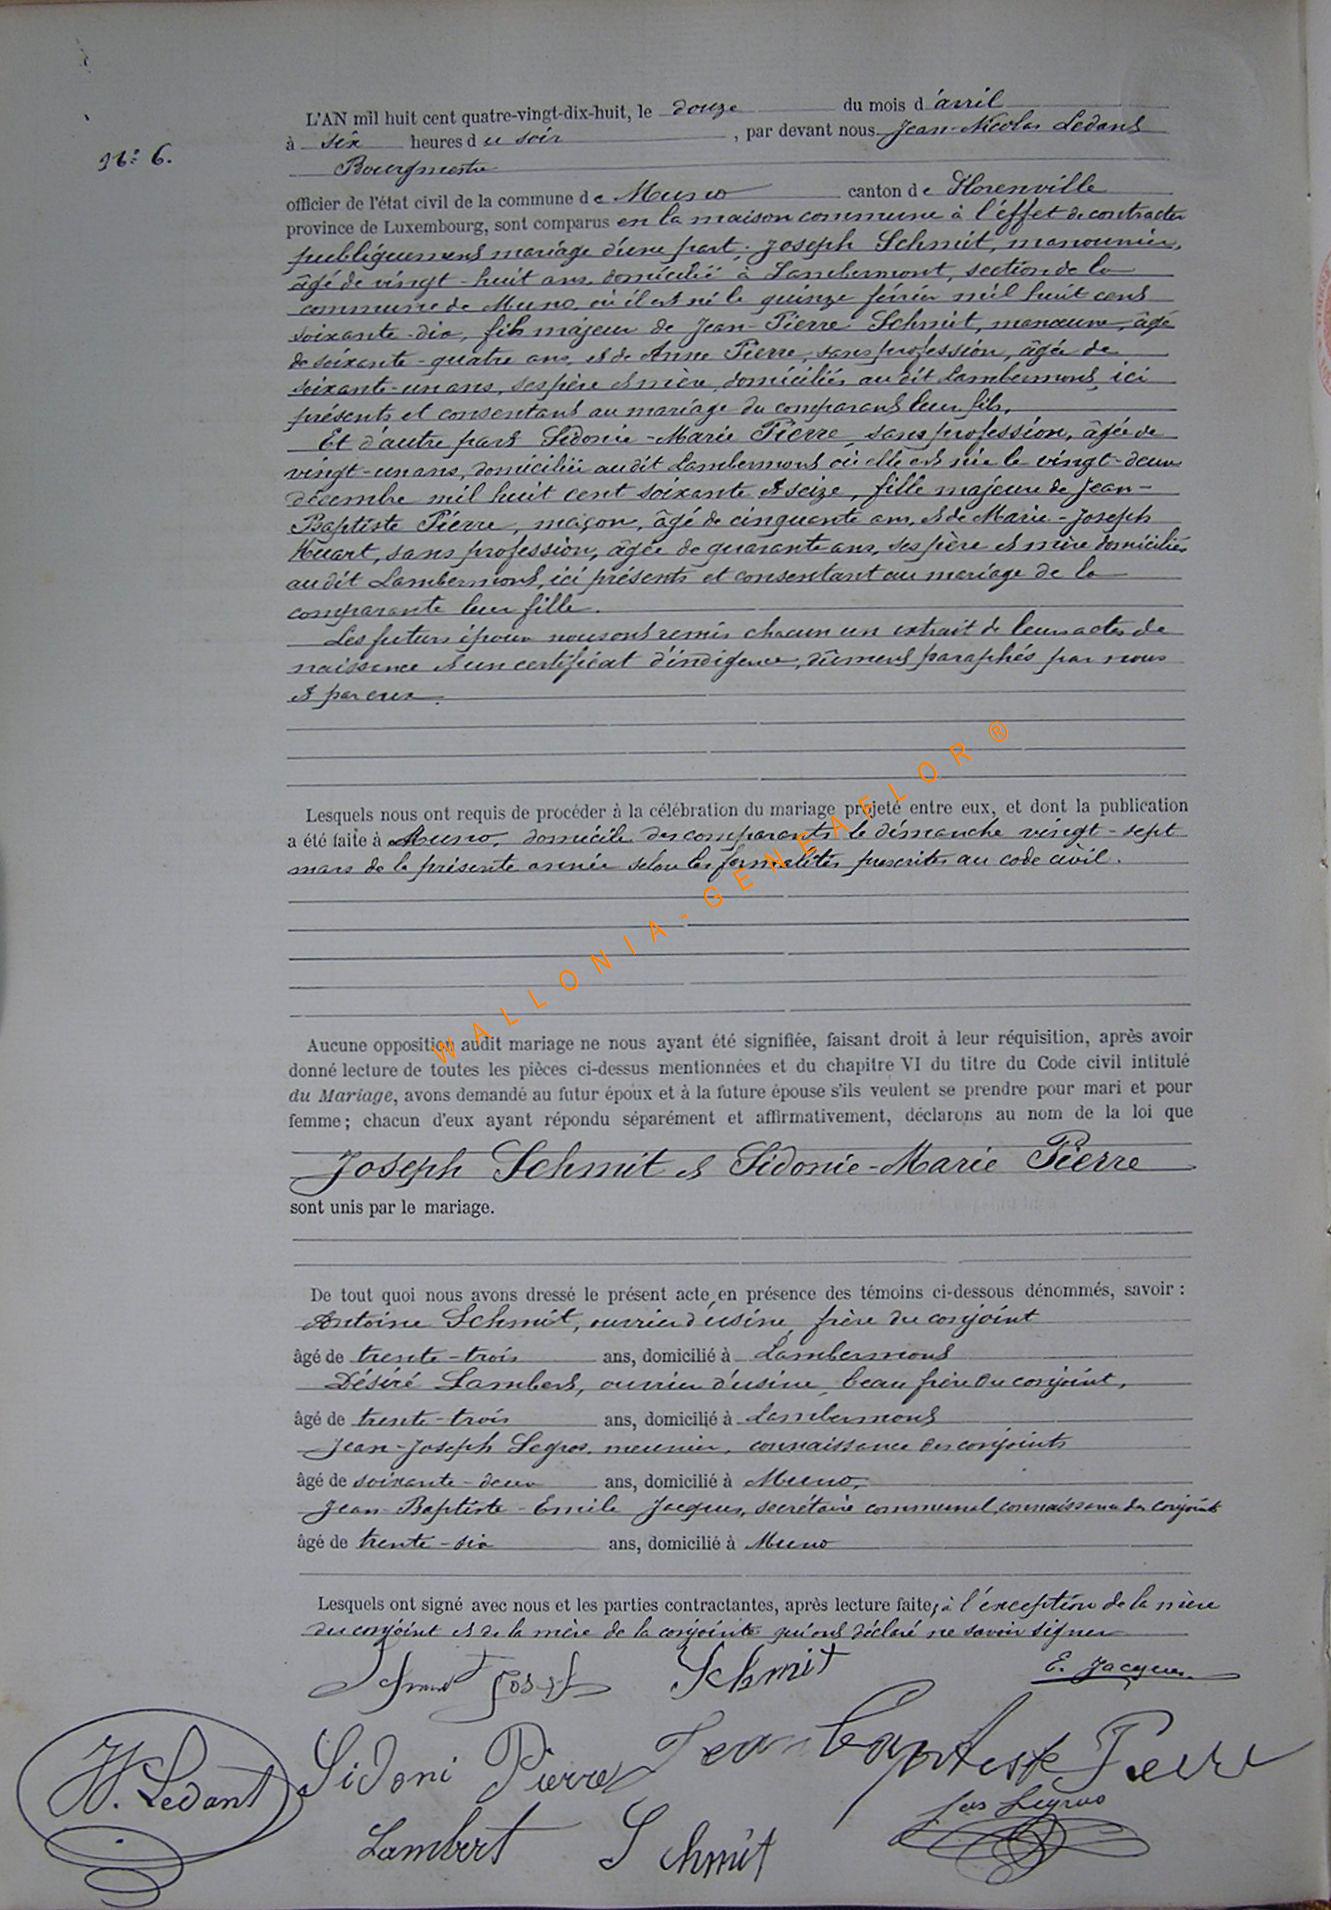 N° 6.
L'AN mil huit cent quatre-vingt-dix-huit, le douze du mois d'avril
à six heures du soir, par devant nous Jean-Nicolas Ledant
Bourgmestre
officier de l'état civil de la commune de Muno canton de Florenville
province de Luxembourg, sont comparus en la maison commune à l'effet de contracter
publiquement mariage d'une part, Joseph Schmit, manouvrier,
âgé de vingt-huit ans, domicilié à Lambermont, section de la
commune de Muno, où il est né le quinze février mil huit cent
soixante-dix, fils majeur de Jean-Pierre Schmit, manœuvre, âgé
de soixante-quatre ans, et de Anne Pierre, sans profession, âgée de
soixante-un ans, ses père et mère, domiciliés au dit Lambermont, ici
présents et consentant au mariage du comparant leur fils.
Et d'autre part Sidonie-Marie Pierre, sans profession, âgée de
vingt-un ans, domiciliée audit Lambermont où elle est née le vingt-deux
décembre mil huit cent soixante et seize, fille majeure de Jean-
Baptiste Pierre, maçon, âgé de cinquante ans, et de Marie-Joseph
Huart, sans profession, âgée de quarante ans, ses père et mère domiciliés
audit Lambermont, ici présents et consentant au mariage de la
comparante leur fille.
Les futurs époux nous ont remis chacun un extrait de leurs actes de
naissance et un certificat d'indigence, dûment paraphés par nous
et par eux.
Lesquels nous ont requis de procéder à la célébration du mariage projeté entre eux, et dont la publication
a été faite à Muno, domicile des comparants le dimanche vingt-sept
mars de la présente année selon les formalités prescrites au code civil.
WALLONIA-GENEAFLOR®
Aucune opposition audit mariage ne nous ayant été signifiée, faisant droit à leur réquisition, après avoir
donné lecture de toutes les pièces ci-dessus mentionnées et du chapitre VI du titre du Code civil intitulé
du Mariage, avons demandé au futur époux et à la future épouse s'ils veulent se prendre pour mari et pour
femme; chacun d'eux ayant répondu séparément et affirmativement, déclarons au nom de la loi que
Joseph Schmit et Sidonie-Marie Pierre
sont unis par le mariage.
De tout quoi nous avons dressé le présent acte en présence des témoins ci-dessous dénommés, savoir :
Antoine Schmit, ouvrier d'usine, frère du conjoint
âgé de trente-trois ans, domicilié à Lambermont
Désiré Lambert, ouvrier d'usine, beau frère du conjoint,
âgé de trente-trois ans, domicilié à Lambermont
Jean-Joseph Legros, meunier, connaissance des conjoints
âgé de soixante-deux ans, domicilié à Muno,
Jean-Baptiste-Emile Jacques, secrétaire communal, connaissance des conjoints
âgé de trente-six ans, domicilié à Muno
Lesquels ont signé avec nous et les parties contractantes, après lecture faite, à l'exception de la mère
du conjoint et de la mère de la conjointe qui ont déclaré ne savoir signer
Schmit Joseph Schmit E. Jacques
N. Ledant Sidoni Pierre Jean baptiste Pierre
Lambert Schmit Legros